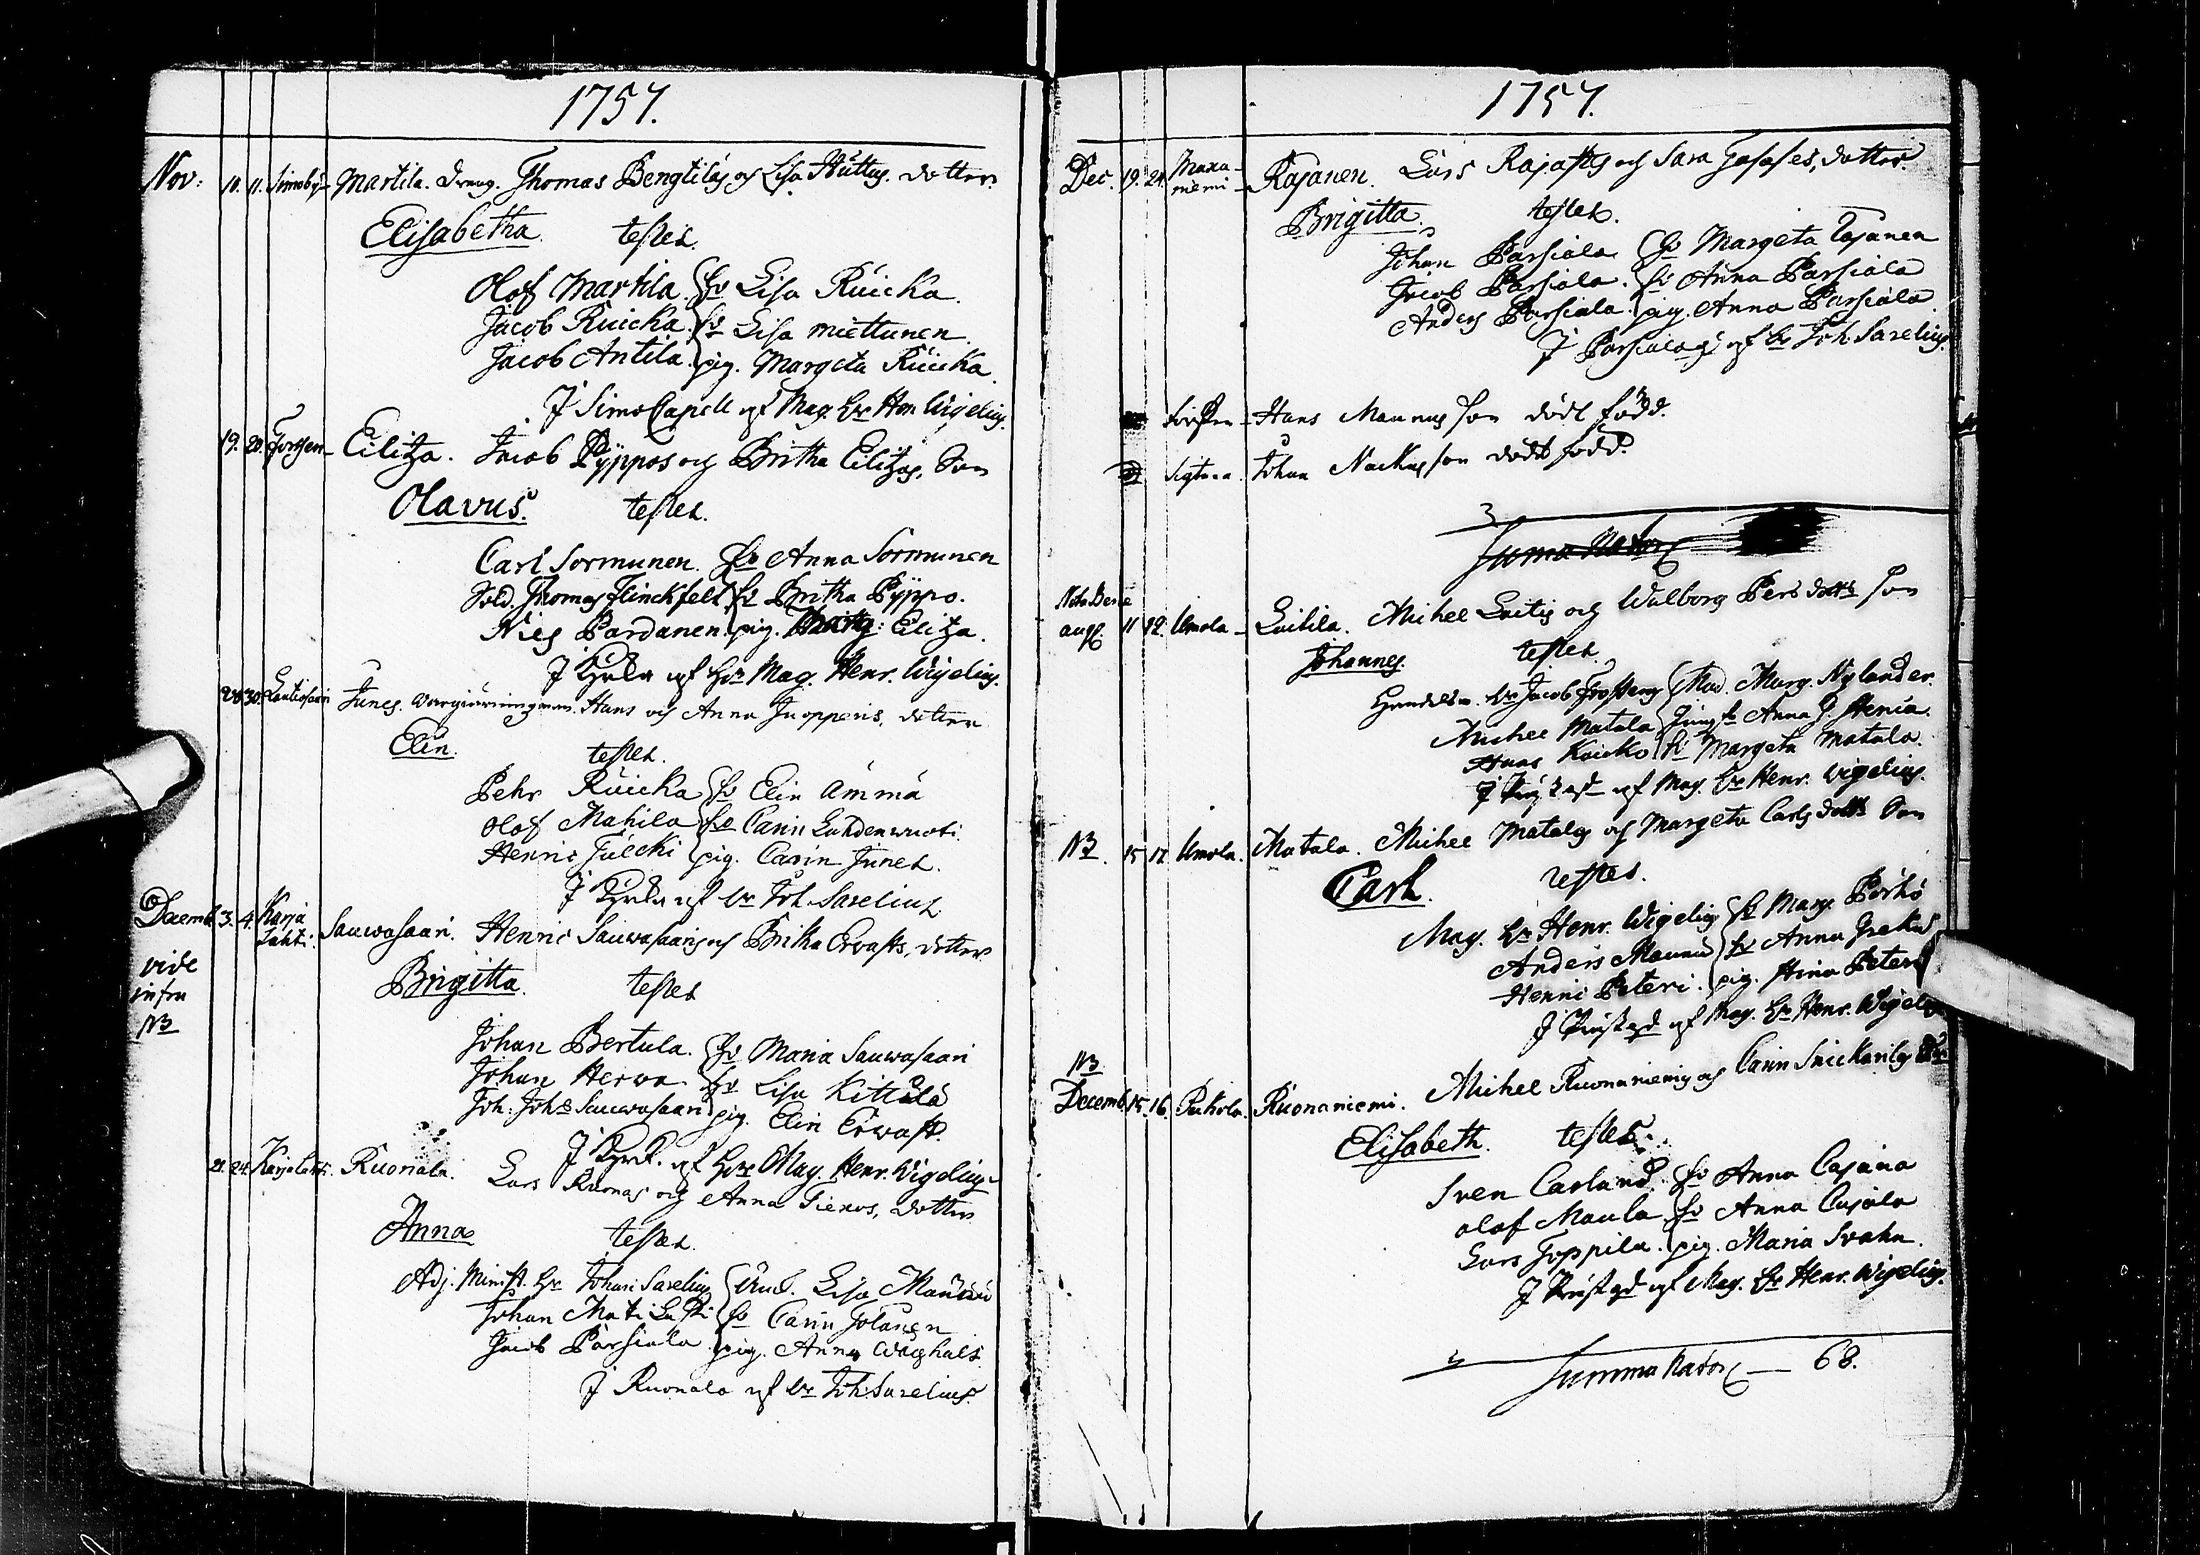 1757.
Nov: 10. 11. Simoby Martila. Dreng. Thomas Bengtilas och Lisa Huttus. dotter
Elisabetha. testes.
Olof Martila. hu Lisa Kuicka.
Jacob Kuicka. hu Lisa Miettunen.
Jacob Antila. pig. Margeta Kuicka.
J Simo Capell af Mag. Hr Hen. Wigelius.
19. 20. Eilitza. Jacob Pÿppos och Britha Eilitzas, Son
Olavus. testes.
Carl Sormunen. hu Anna Sormunen
Sold. Thomas Flinckfelt hu Britha Pÿppo.
Nies Pardanen. pig. Eilitza.
J Kyrkn af Hr Mag. Henr. Wigelius.
30. Junes. Hans och Anna Juopperis, dotter
Elin. testes.
Pehr Kuicka hu Elin Ämmä
Olof Mahila hu Carin Luhdenwuoti
Henric Julcki pig. Carin Junes.
J Kyrkn af Hr Joh. Sarelius.
Decemb. 3. 4. Karja
lahti. Sauwasaari. Henric Sauwasaaris och Brita Erwasts, dotter
vide
infra
NB
Brigitta. testes
Johan Bertula. hu Maria Sauwasaari
Johan Herwa. hu Lisa Kittilä
Joh: Johs Sauwasaari pig. Elin Erwast.
J Kyrk. af Hr Mag. Henr. Wigelius.
21. 24. Karjalahti. Ruonala. Lars Ruonas och Anna Sienos, dotter
Anna testes.
Adj. Minist. Hr Johan Sarelius Lisa
Johan Mati Lasti hu Carin Jolanen
Jacob Parsiala pig. Anna Waghals
J Ruonala af Hr Joh. Sarelius.
1757.
Dec. 19. 24. Maxa-
niemi Rajanen. Lars Rajas och Sara dotter
Brigitta. testes.
Johan Parsiala hu Margeta Tajanen
Jacob Parsiala. hu Anna Parsiala
Anders Parsiala. pig. Anna Parsiala
J Parsiala af Hr Joh. Sarelius.
Hans Maunus son död född.
Johan Nackus son död född.
Summa Nator
Nota Bene
aug. 11 12. Umola Luitila. Michel Luitis och Walborg Pers dotts son
Johannes. testes.
Hr Jacob Frosterus Mad. Marg. Nylander.
Michel Matala Anna
Hans Kaicko hu Margeta Matala.
J af Mag. Hr Henr. Wigelius.
NB. 15 17. Umola. Matala. Michel Matalas och Margeta Carls dotts Son
Carl. testes.
Mag. Hr Henr. Wigelius hu Marg. Pörhö
Anders Maunu hu Anna
Henric Peteri. pig. Stina Peteri
J af Mag. Hr Henr. Wigelius
NB
Decemb. 15. 16. Ruonaniemi. Michel Ruonaniemis och Carin Snickarilas
Elisabeth. testes.
Sven Carlund. hu Anna Cajana
Olof Maula hu Anna Cajala
Lars Toppila. pig. Maria Svahn.
J af Mag. Hr Henr. Wigelius.
Summa Nator — 68.